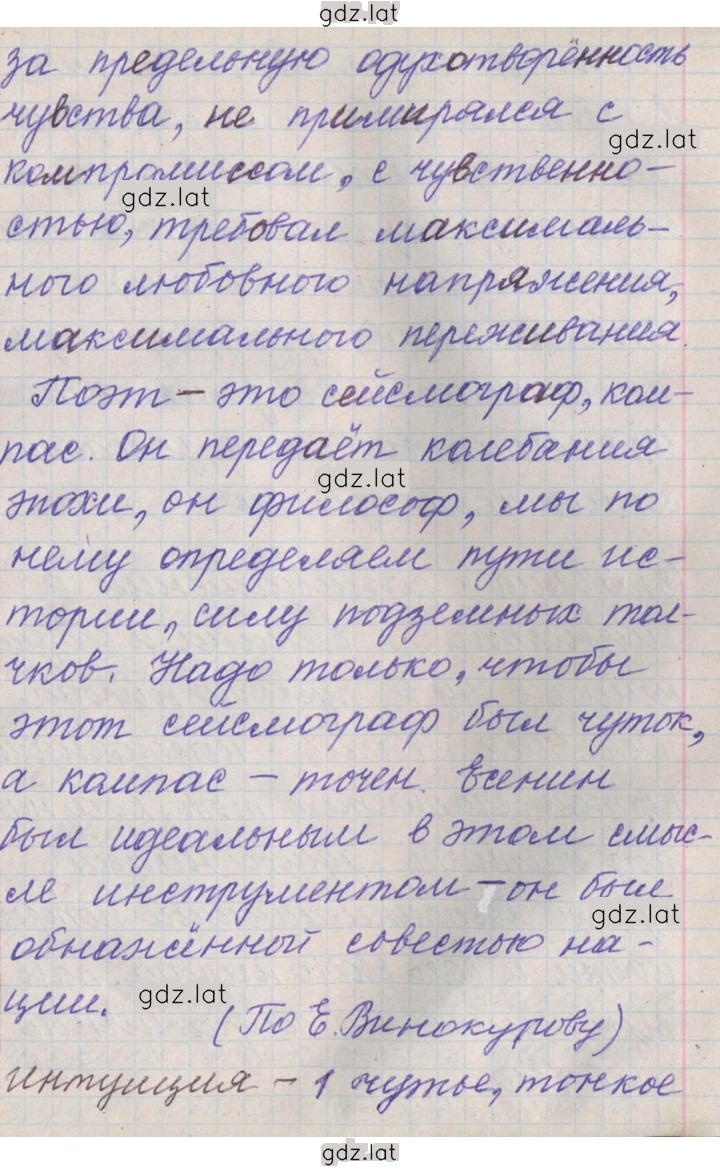 gdz.lat
за предельную одухотворённость
чувства, не примирялся с
gdz.lat
компромиссом, с чувственно-
gdz.lat
стью, требовал максималь-
ного любовного напряжения,
максимального переживания.
Поэт – это сейсмограф, ком-
пас. Он передаёт колебания
gdz.lat
эпохи, он философ, мы по
нему определяем пути ис-
тории, силу подземных тол-
чков. Надо только, чтобы
этот сейсмограф был чуток,
а компас – точен. Есенин
был идеальным в этом смыс-
ле инструментом – он был
gdz.lat
обнажённой совестью на-
ции.
gdz.lat
(По Е. Винокурову)
интуиция – 1 чутье, тонкое
gdz.lat